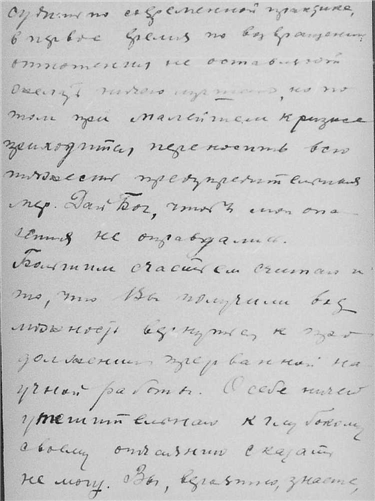 судя по современной практике,
в первое время по возвращении
отношения не оставляют
желать ничего лучшего, но по
том при малейшем кризисе
приходится переносить всю
тяжесть предупредительных
мер. Дай Бог, чтобъ мои опа
сения не оправдались.
Большим счастьем считал и
то, что Вы получили воз
можность вернуться к про
должению прерванной на
учной работы. О себе ничего
утешительного к глубокому
своему отчаянию сказать
не могу. Вы, вероятно, знаете,